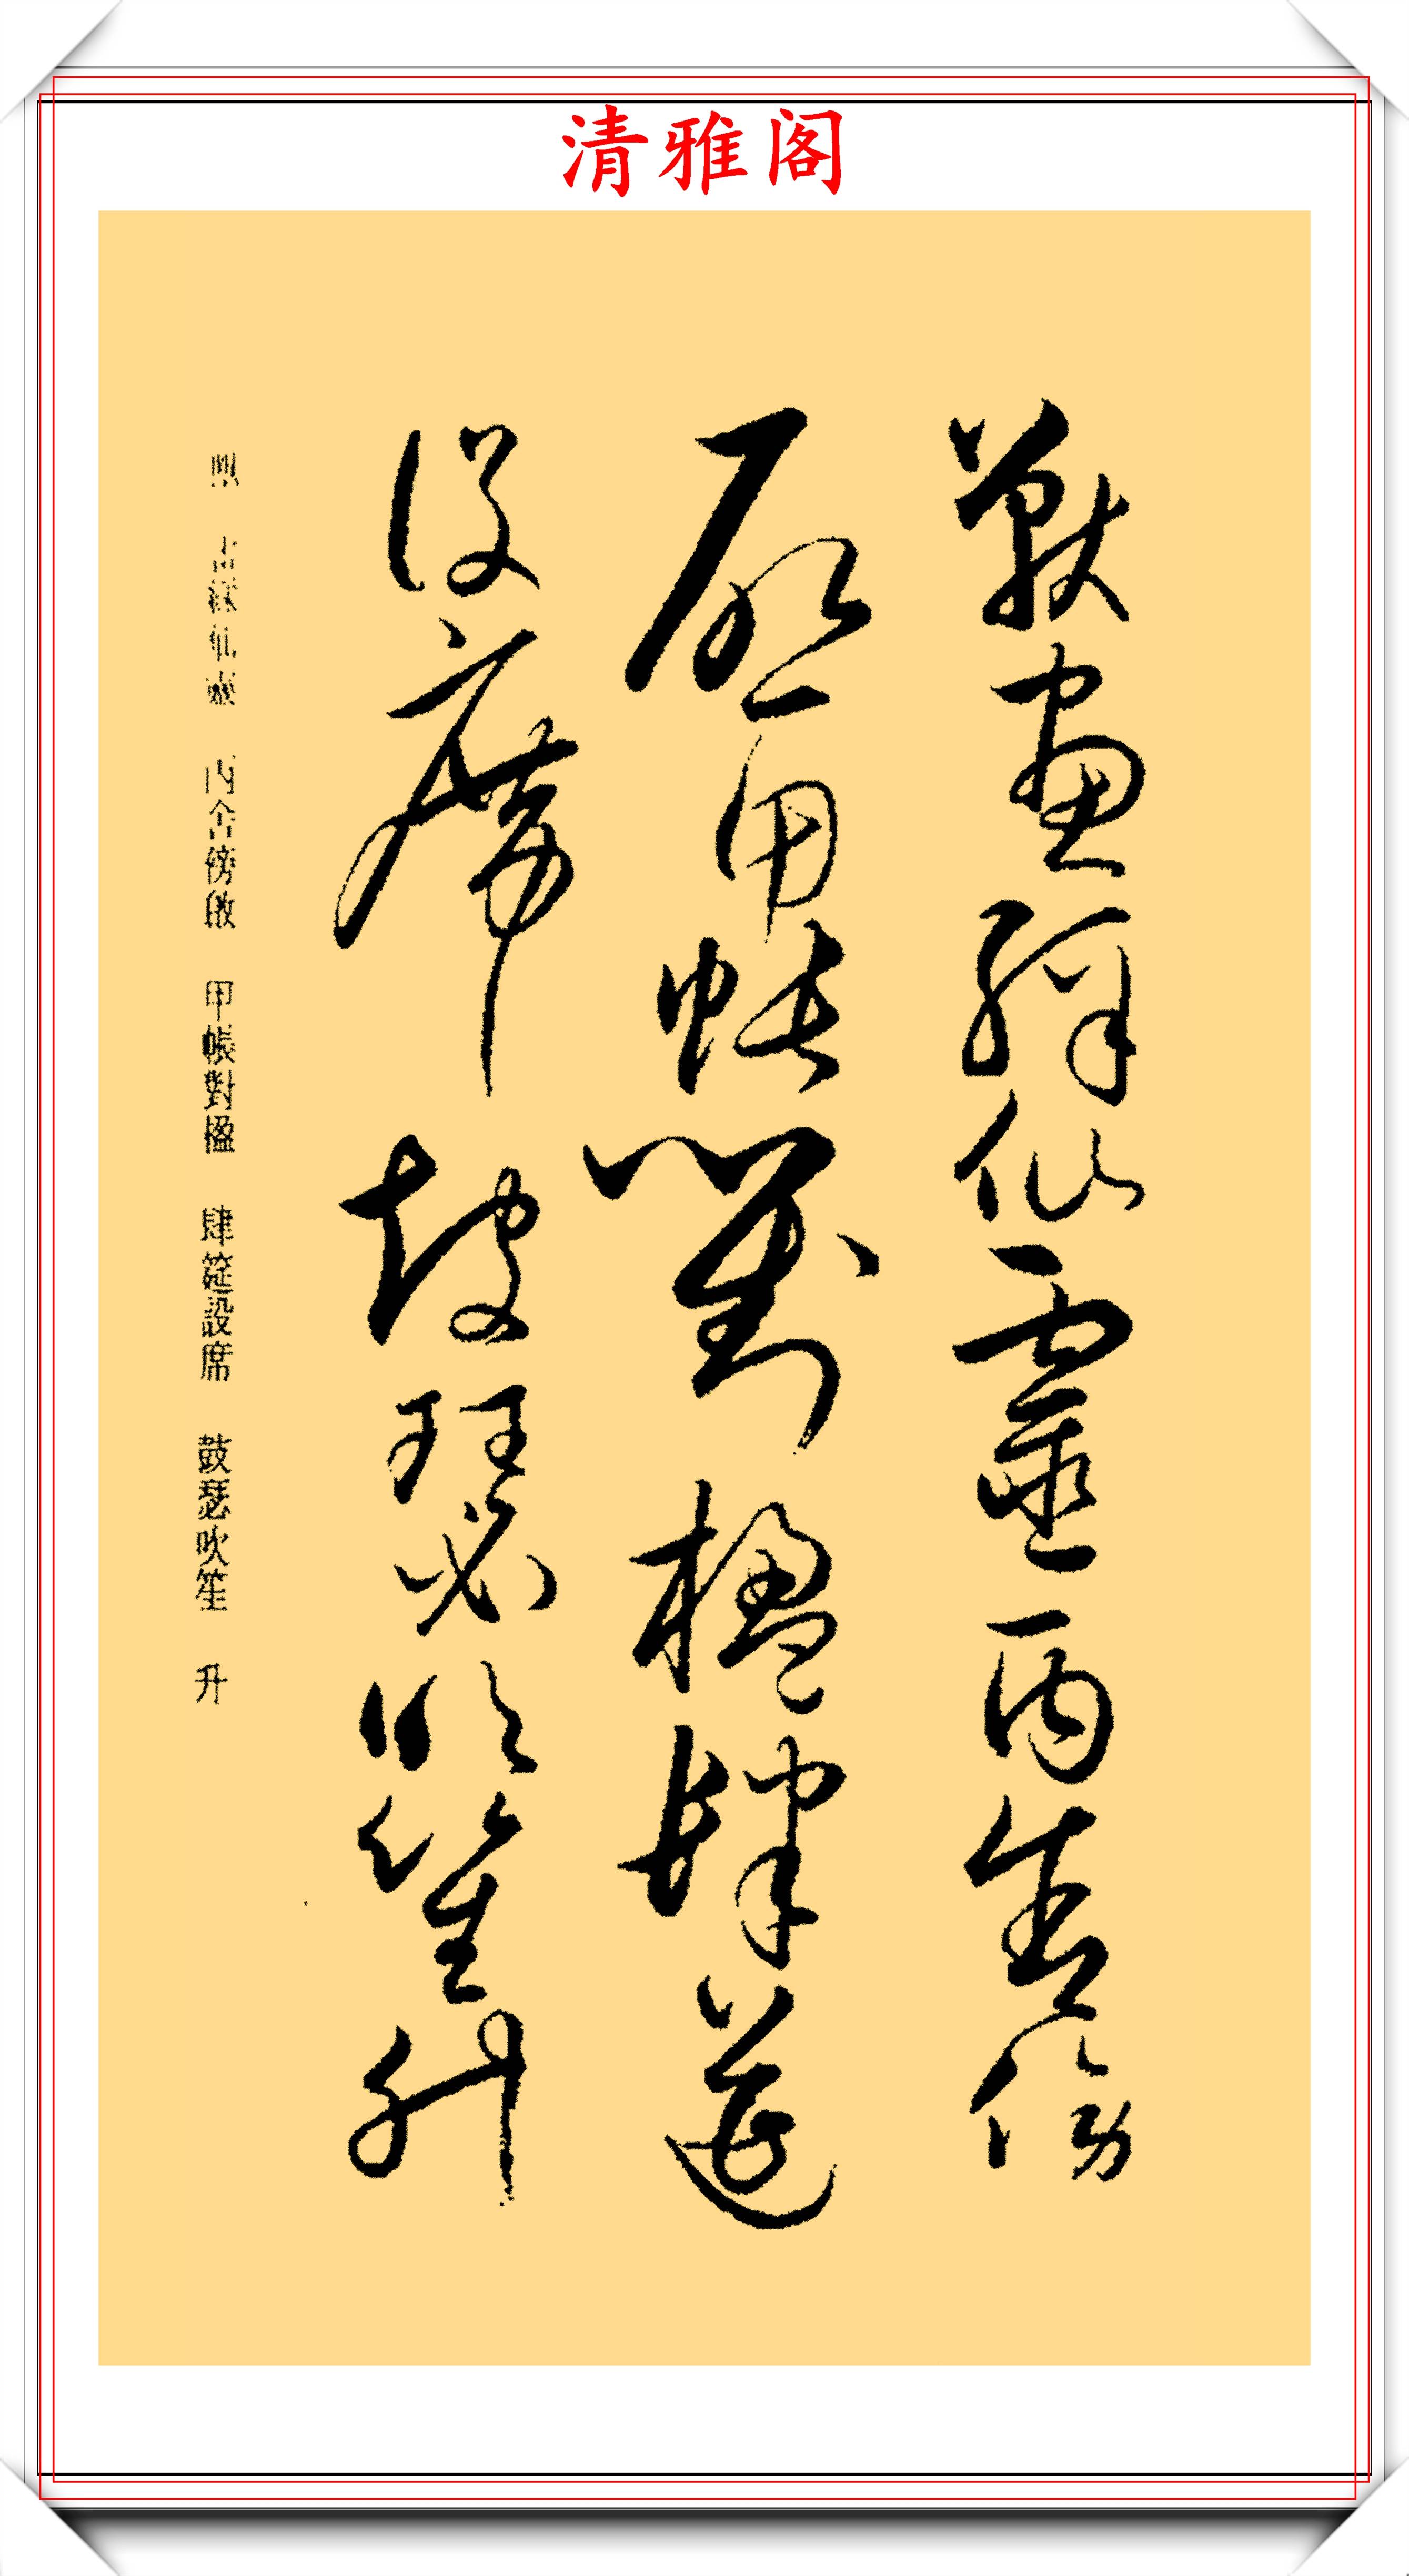 清雅阁
獸畫彩仙靈丙舍傍
啟甲帳對楹肆筵
設席鼓瑟吹笙升
獸 畫彩仙靈 丙舍傍啟 甲帳對楹 肆筵設席 鼓瑟吹笙 升